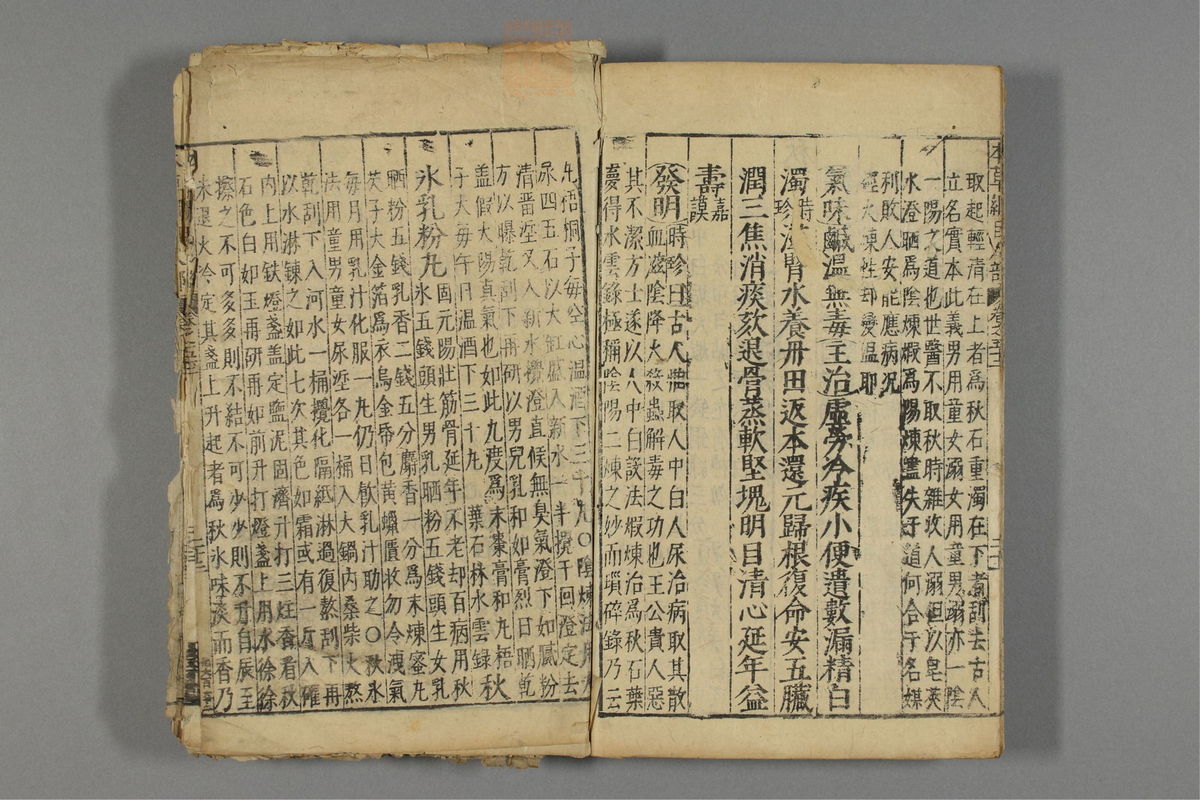 本草綱目人部 卷之五十二 二十
取起輕清在上者爲秋石重濁在下煮刮去古人
立名實本此義男用童女溺女用童男溺亦一陰
一陽之道也世醫不取秋時雜收人溺但以皂莢
水澄晒爲陰煉煅爲陽煉盡失于道何合于名媒
利敗人安能應病况
經火煉性却變温耶
氣味鹹温無毒主治虛勞冷疾小便遺數漏精白
濁時珍滋腎水養丹田返本還元歸根復命安五臟
潤三焦消痰欬退骨蒸軟堅塊明目清心延年益
壽嘉謨
發明時珍曰古人惟取人中白人尿治病取其散
血滋陰降火殺蟲解毒之功也王公貴人惡
其不潔方士遂以人中白設法煅煉治爲秋石葉
夢得水雲錄極稱陰陽二煉之妙而瑣碎錄乃云
丸梧桐子每空心温酒下三十丸〇陰煉法用
尿四五石以大缸盛入新水一半攪千回澄定去
清畱垽又入新水攪澄直候無臭氣澄下如膩粉
方以曝乾刮下再研以男兒乳和如膏烈日晒乾
蓋假太陽真氣也如此九度爲末棗膏和丸梧
子大每午日温酒下三十丸 葉石林水雲錄 秋
氷乳粉丸固元陽壯筋骨延年不老却百病用秋
氷五錢頭生男乳晒粉五錢頭生女乳
晒粉五錢乳香二錢五分麝香一分爲末煉蜜丸
芡子大金箔爲衣烏金帋包黄蠟匱收勿令洩氣
每月用乳汁化服一丸仍日飲乳汁助之〇秋氷
法用童男童女尿垽各一桶入大鍋内桑柴火熬
乾刮下入河水一桶攪化隔紙淋過復熬刮下再
以水淋鍊之如此七次其色如霜或有一斤入罐
内上用鉄燈盞盖定鹽泥固濟升打三炷香看秋
石色白如玉再研再如前升打燈盞上用水徐徐
擦之不可多多則不結不可少少則不升自辰至
未退火冷定其盞上升起者爲秋氷味淡而香乃